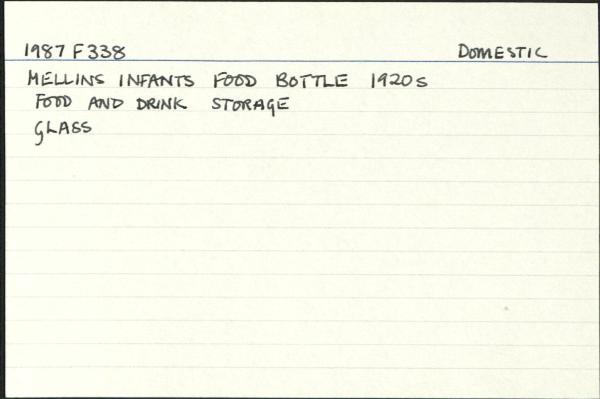 1987 F 338 DOMESTIC
MELLINS INFANTS FOOD BOTTLE 1920s
FOOD AND DRINK STORAGE
GLASS